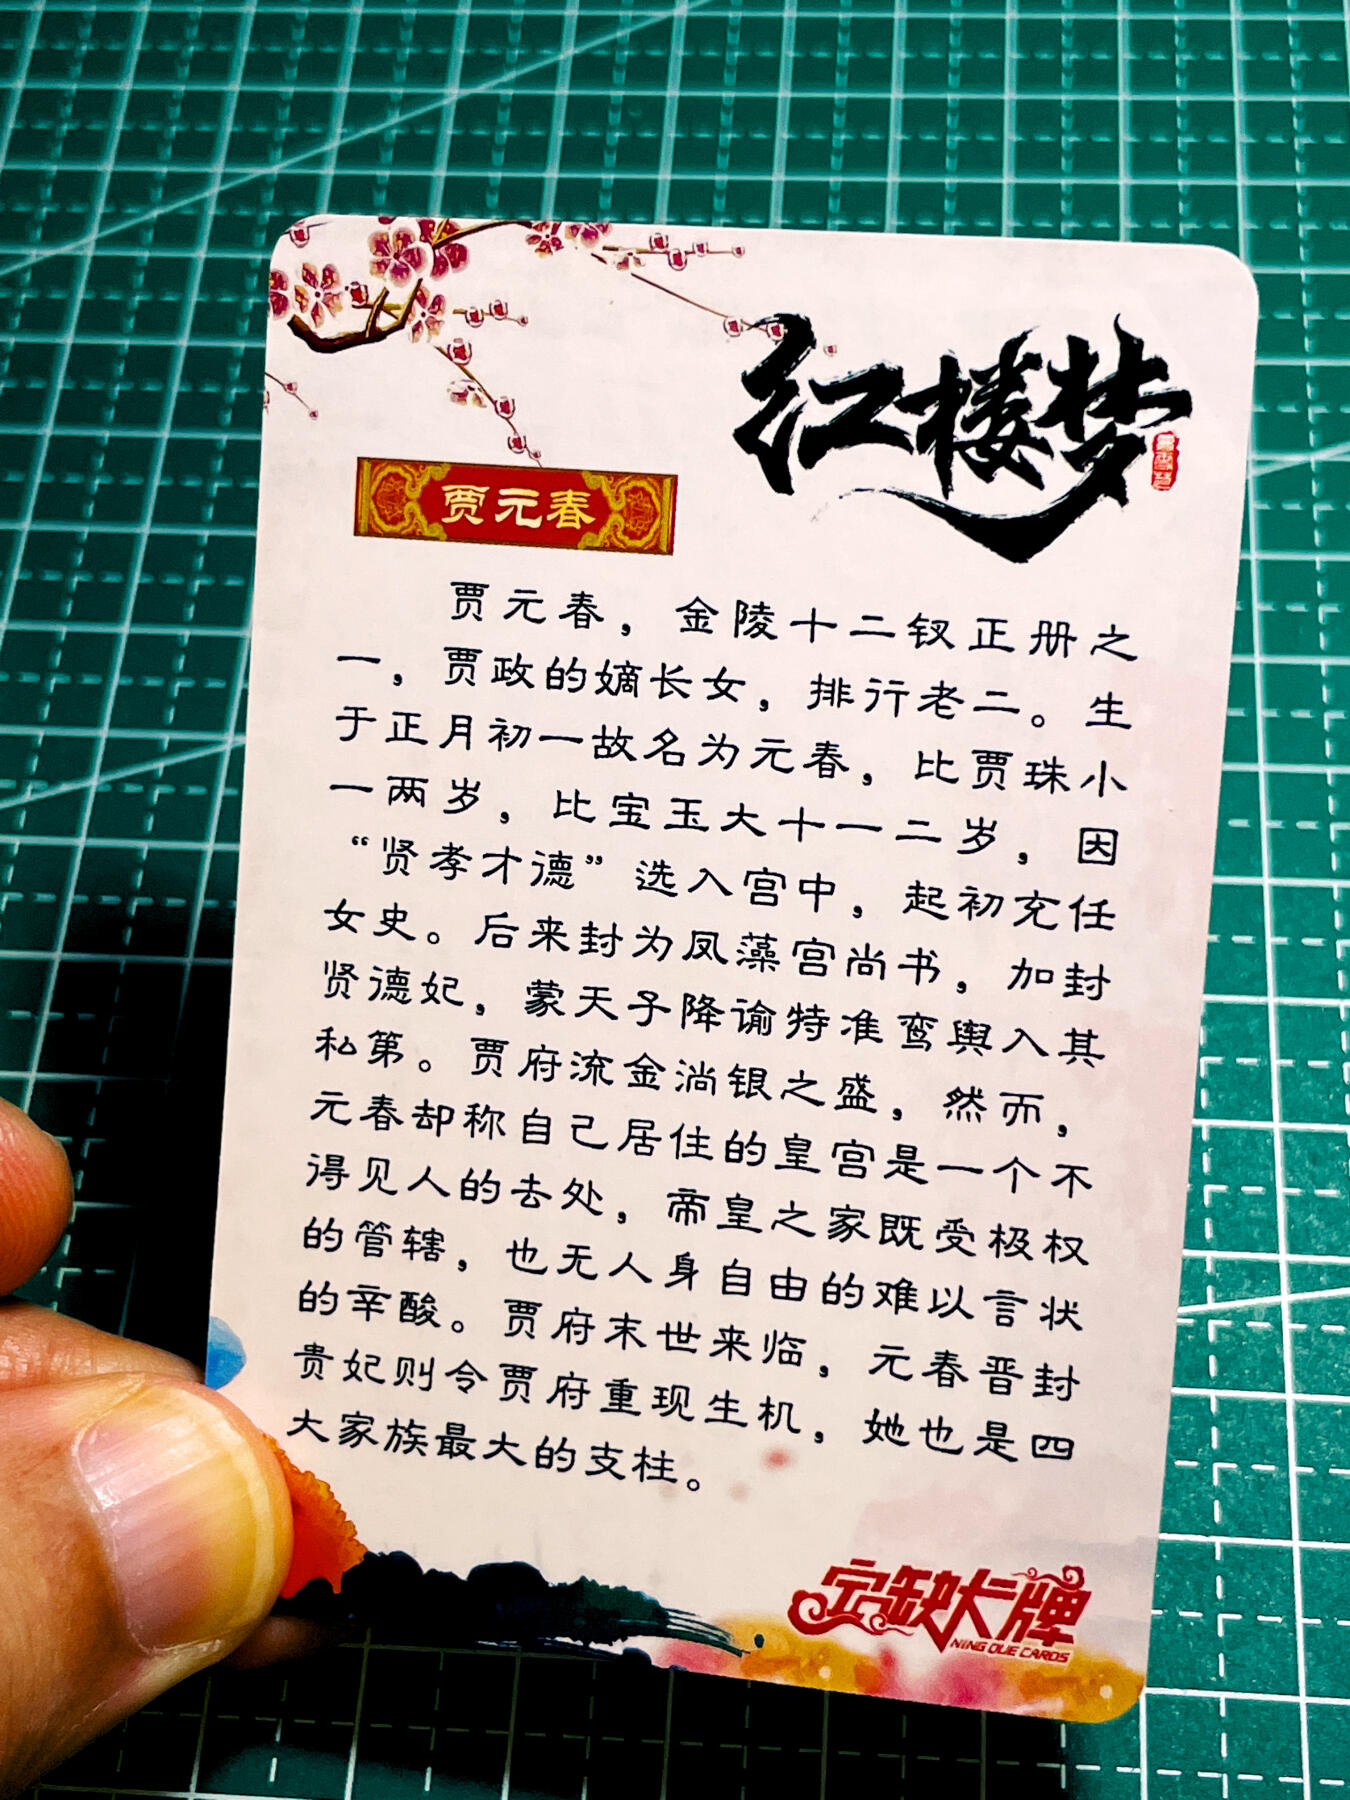 红楼梦
贾元春
贾元春，金陵十二钗正册之
一，贾政的嫡长女，排行老二。生
于正月初一故名为元春，比贾珠小
一两岁，比宝玉大十一二岁，因
“贤孝才德”选入宫中，起初充任
女史。后来封为凤藻宫尚书，加封
贤德妃，蒙天子降谕特准鸾舆入其
私第。贾府流金淌银之盛，然而，
元春却称自己居住的皇宫是一个不
得见人的去处，帝皇之家既受极权
的管辖，也无人身自由的难以言状
的辛酸。贾府末世来临，元春晋封
贵妃则令贾府重现生机，她也是四
大家族最大的支柱。
宁缺大牌
NING QUE CARDS